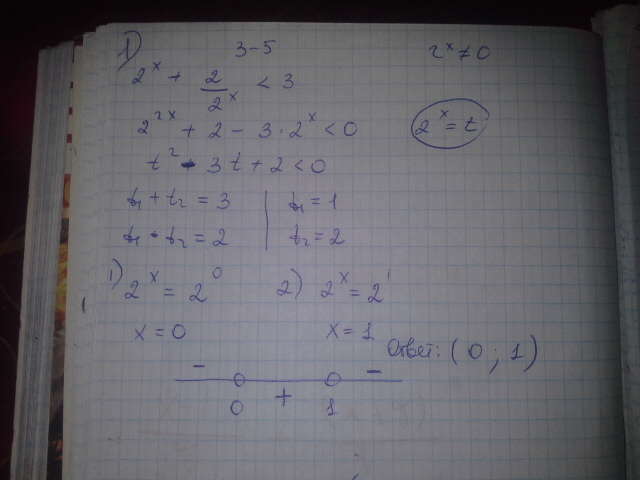 1) 3-5 2^x ≠ 0
2^x + 2/2^x < 3
2^2x + 2 - 3 · 2^x < 0 2^x = t
t^2 - 3t + 2 < 0
t1 + t2 = 3 | t1 = 1
t1 · t2 = 2 | t2 = 2
1) 2^x = 2^0 2) 2^x = 2^1
x = 0 x = 1
Ответ: (0 ; 1)
- -
0 + 1